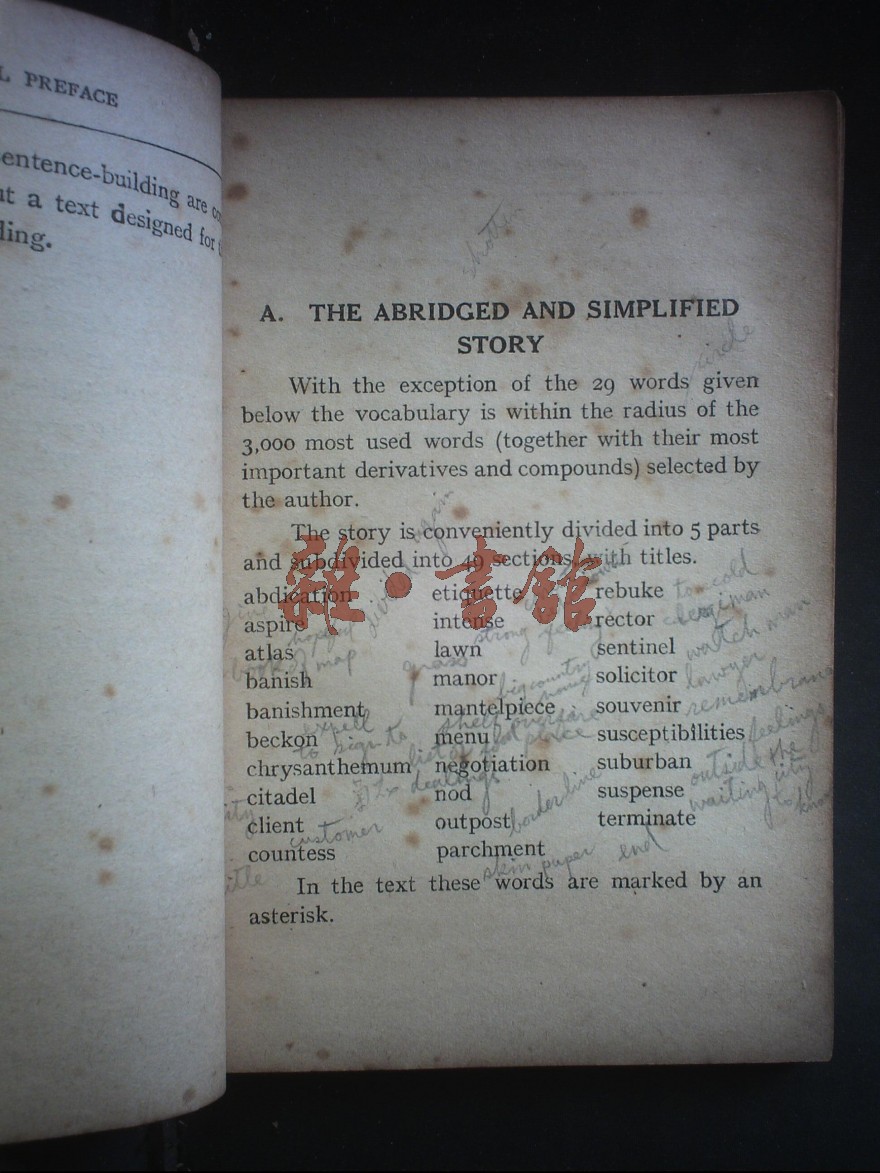 L PREFACE
entence-building are
ut a text designed for
ling.
A. THE ABRIDGED AND SIMPLIFIED
STORY
circle
With the exception of the 29 words given
below the vocabulary is within the radius of the
3,000 most used words (together with their most
important derivatives and compounds) selected by
the author.
The story is conveniently divided into 5 parts
and subdivided into 49 sections, with titles.
雜·書館
abdication etiquette rebuke to cold
aspire intense rector clergiman
hopeful strong feeling
atlas lawn sentinel watch man
book of map grass
banish manor solicitor lawyer
big country house
banishment mantelpiece souvenir remembrans
expell shelf over fire place
beckon menu susceptibilities feelings
to sign to list of food
chrysanthemum negotiation suburban outside the city
dealings
citadel nod suspense waiting to know
client outpost terminate
customer borderline end
countess parchment
title skin paper
In the text these words are marked by an
asterisk.